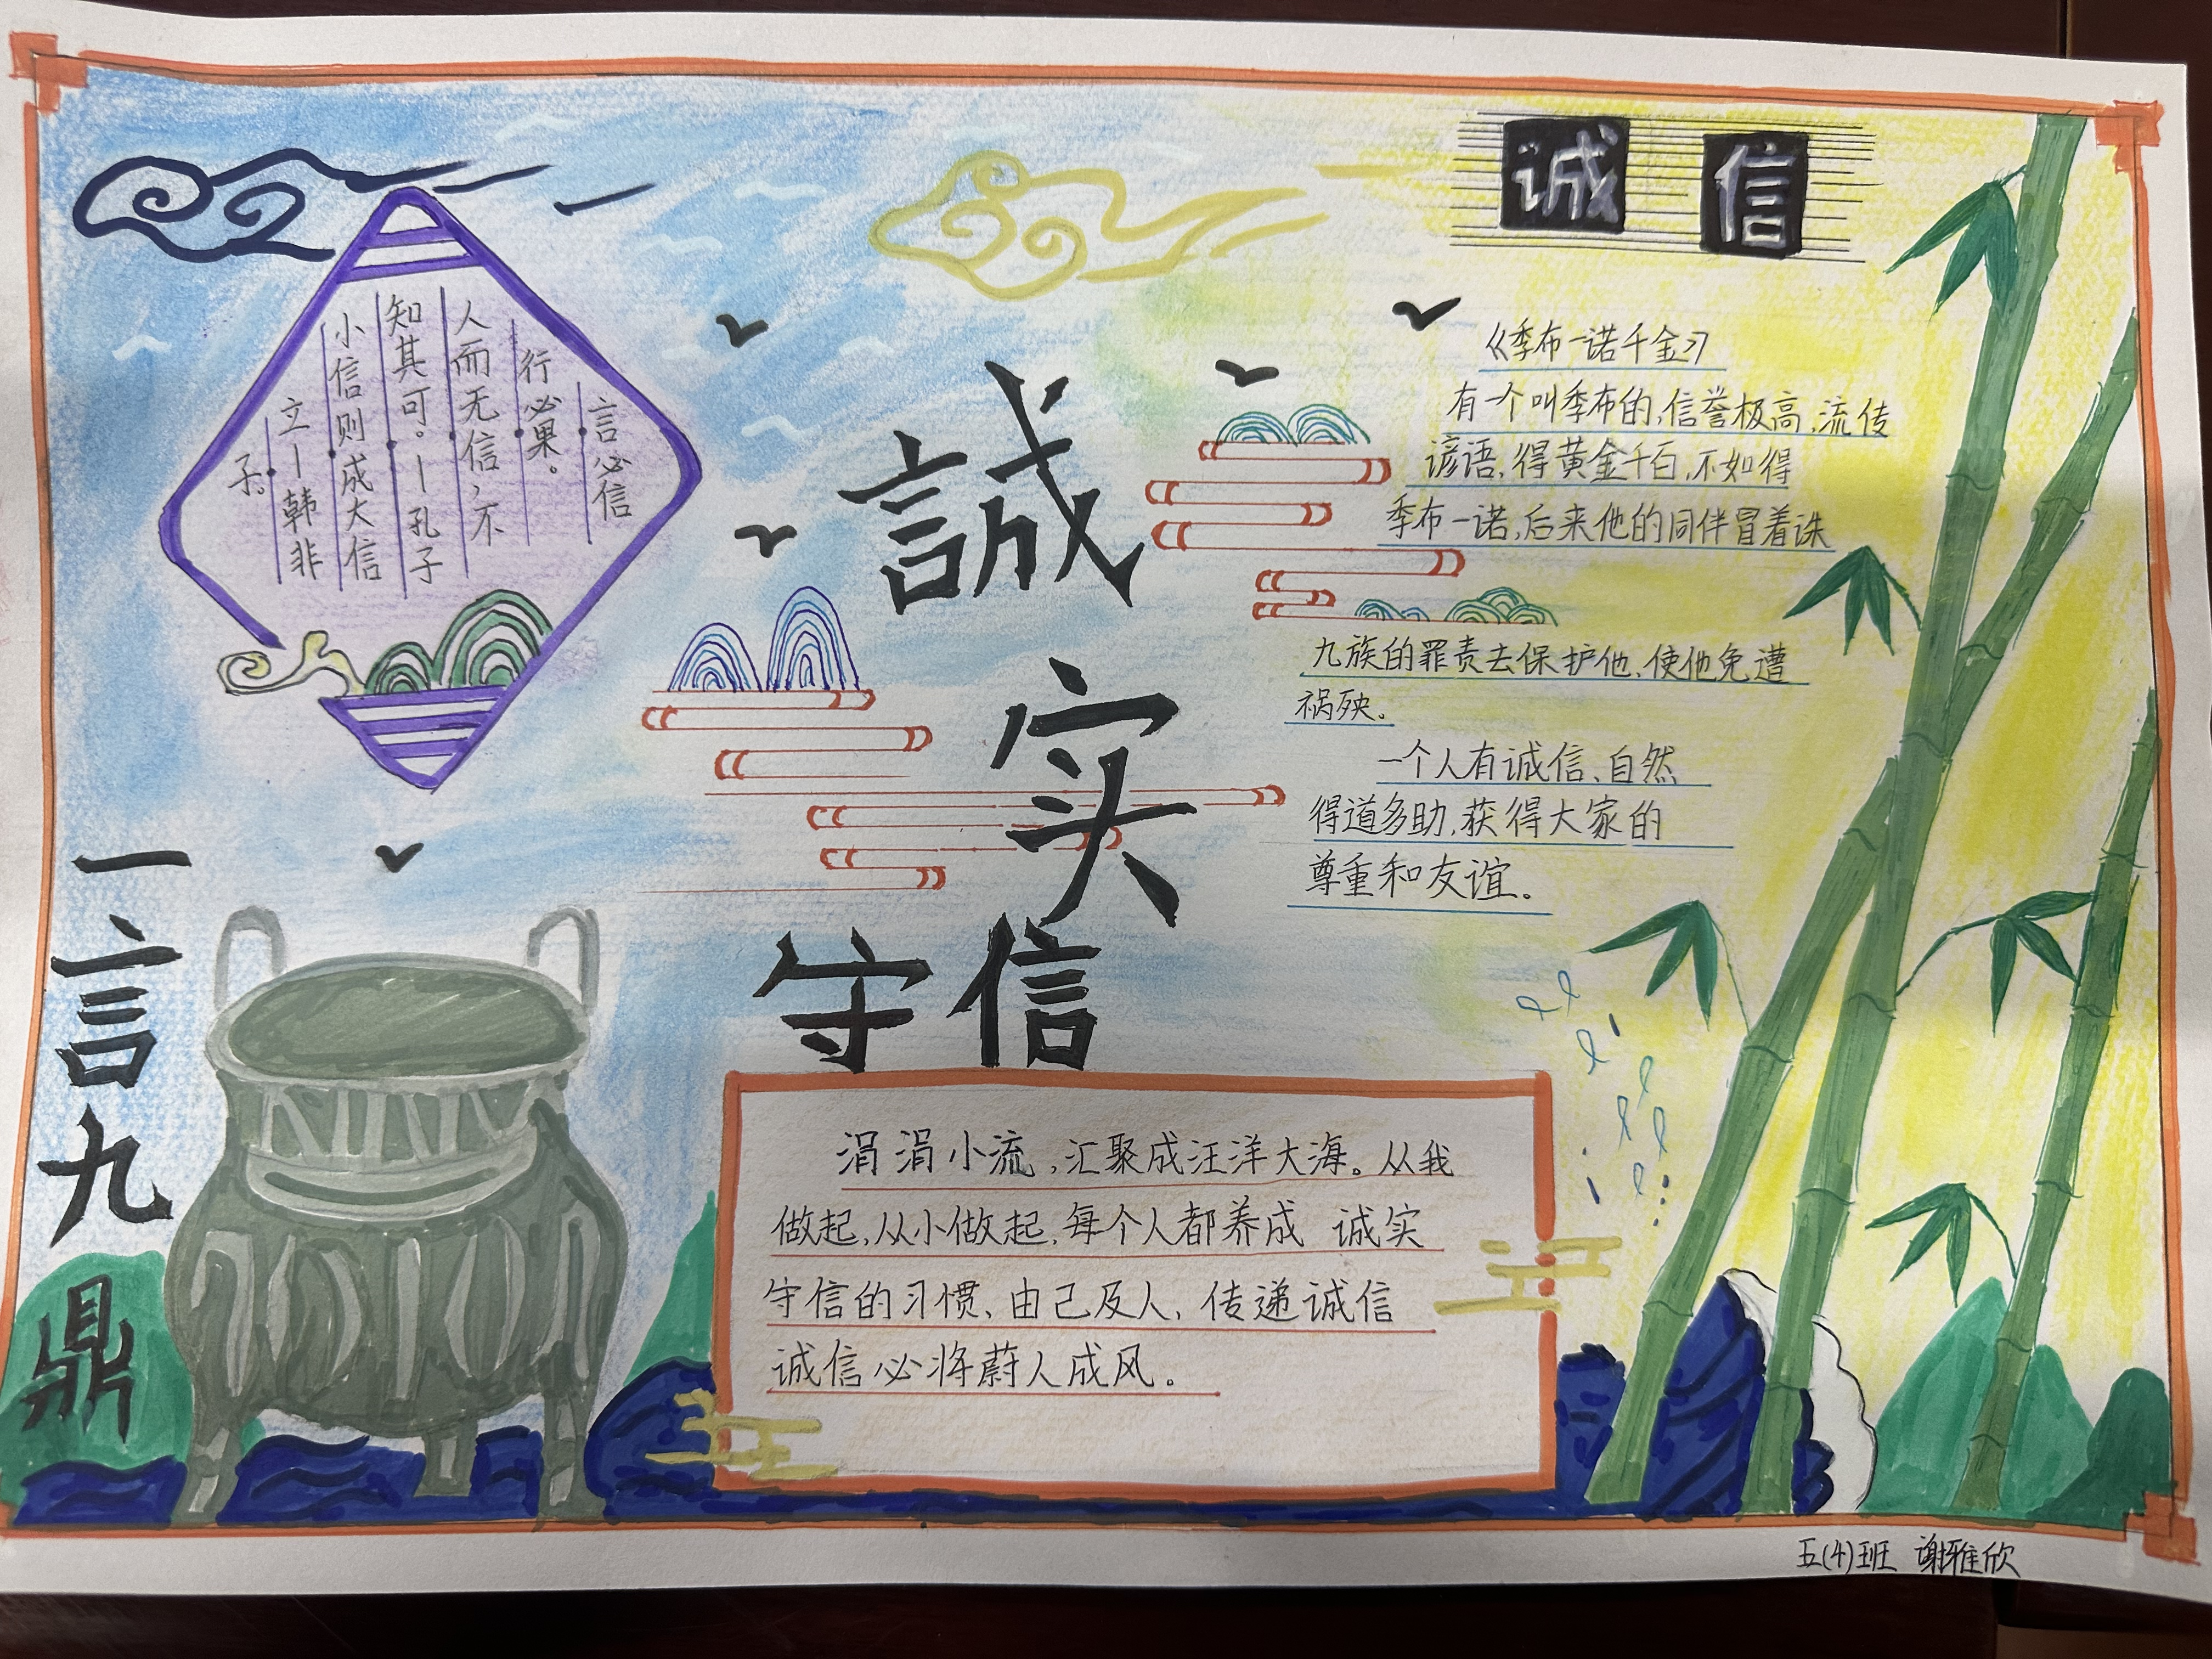 诚信
言必信
行必果。
人而无信,不
知其可。—孔子
小信则成大信
立—韩非
子。
誠
实
守信
《季布一诺千金》
有一个叫季布的,信誉极高,流传
谚语,得黄金千白,不如得
季布一诺,后来他的同伴冒着诛
九族的罪责去保护他,使他免遭
祸殃。
一个人有诚信、自然
得道多助,获得大家的
尊重和友谊。
一言九鼎
涓涓小流,汇聚成汪洋大海。从我
做起,从小做起,每个人都养成 诚实
守信的习惯、由己及人,传递诚信
诚信必将蔚人成风。
五(4)班 谢雅欣